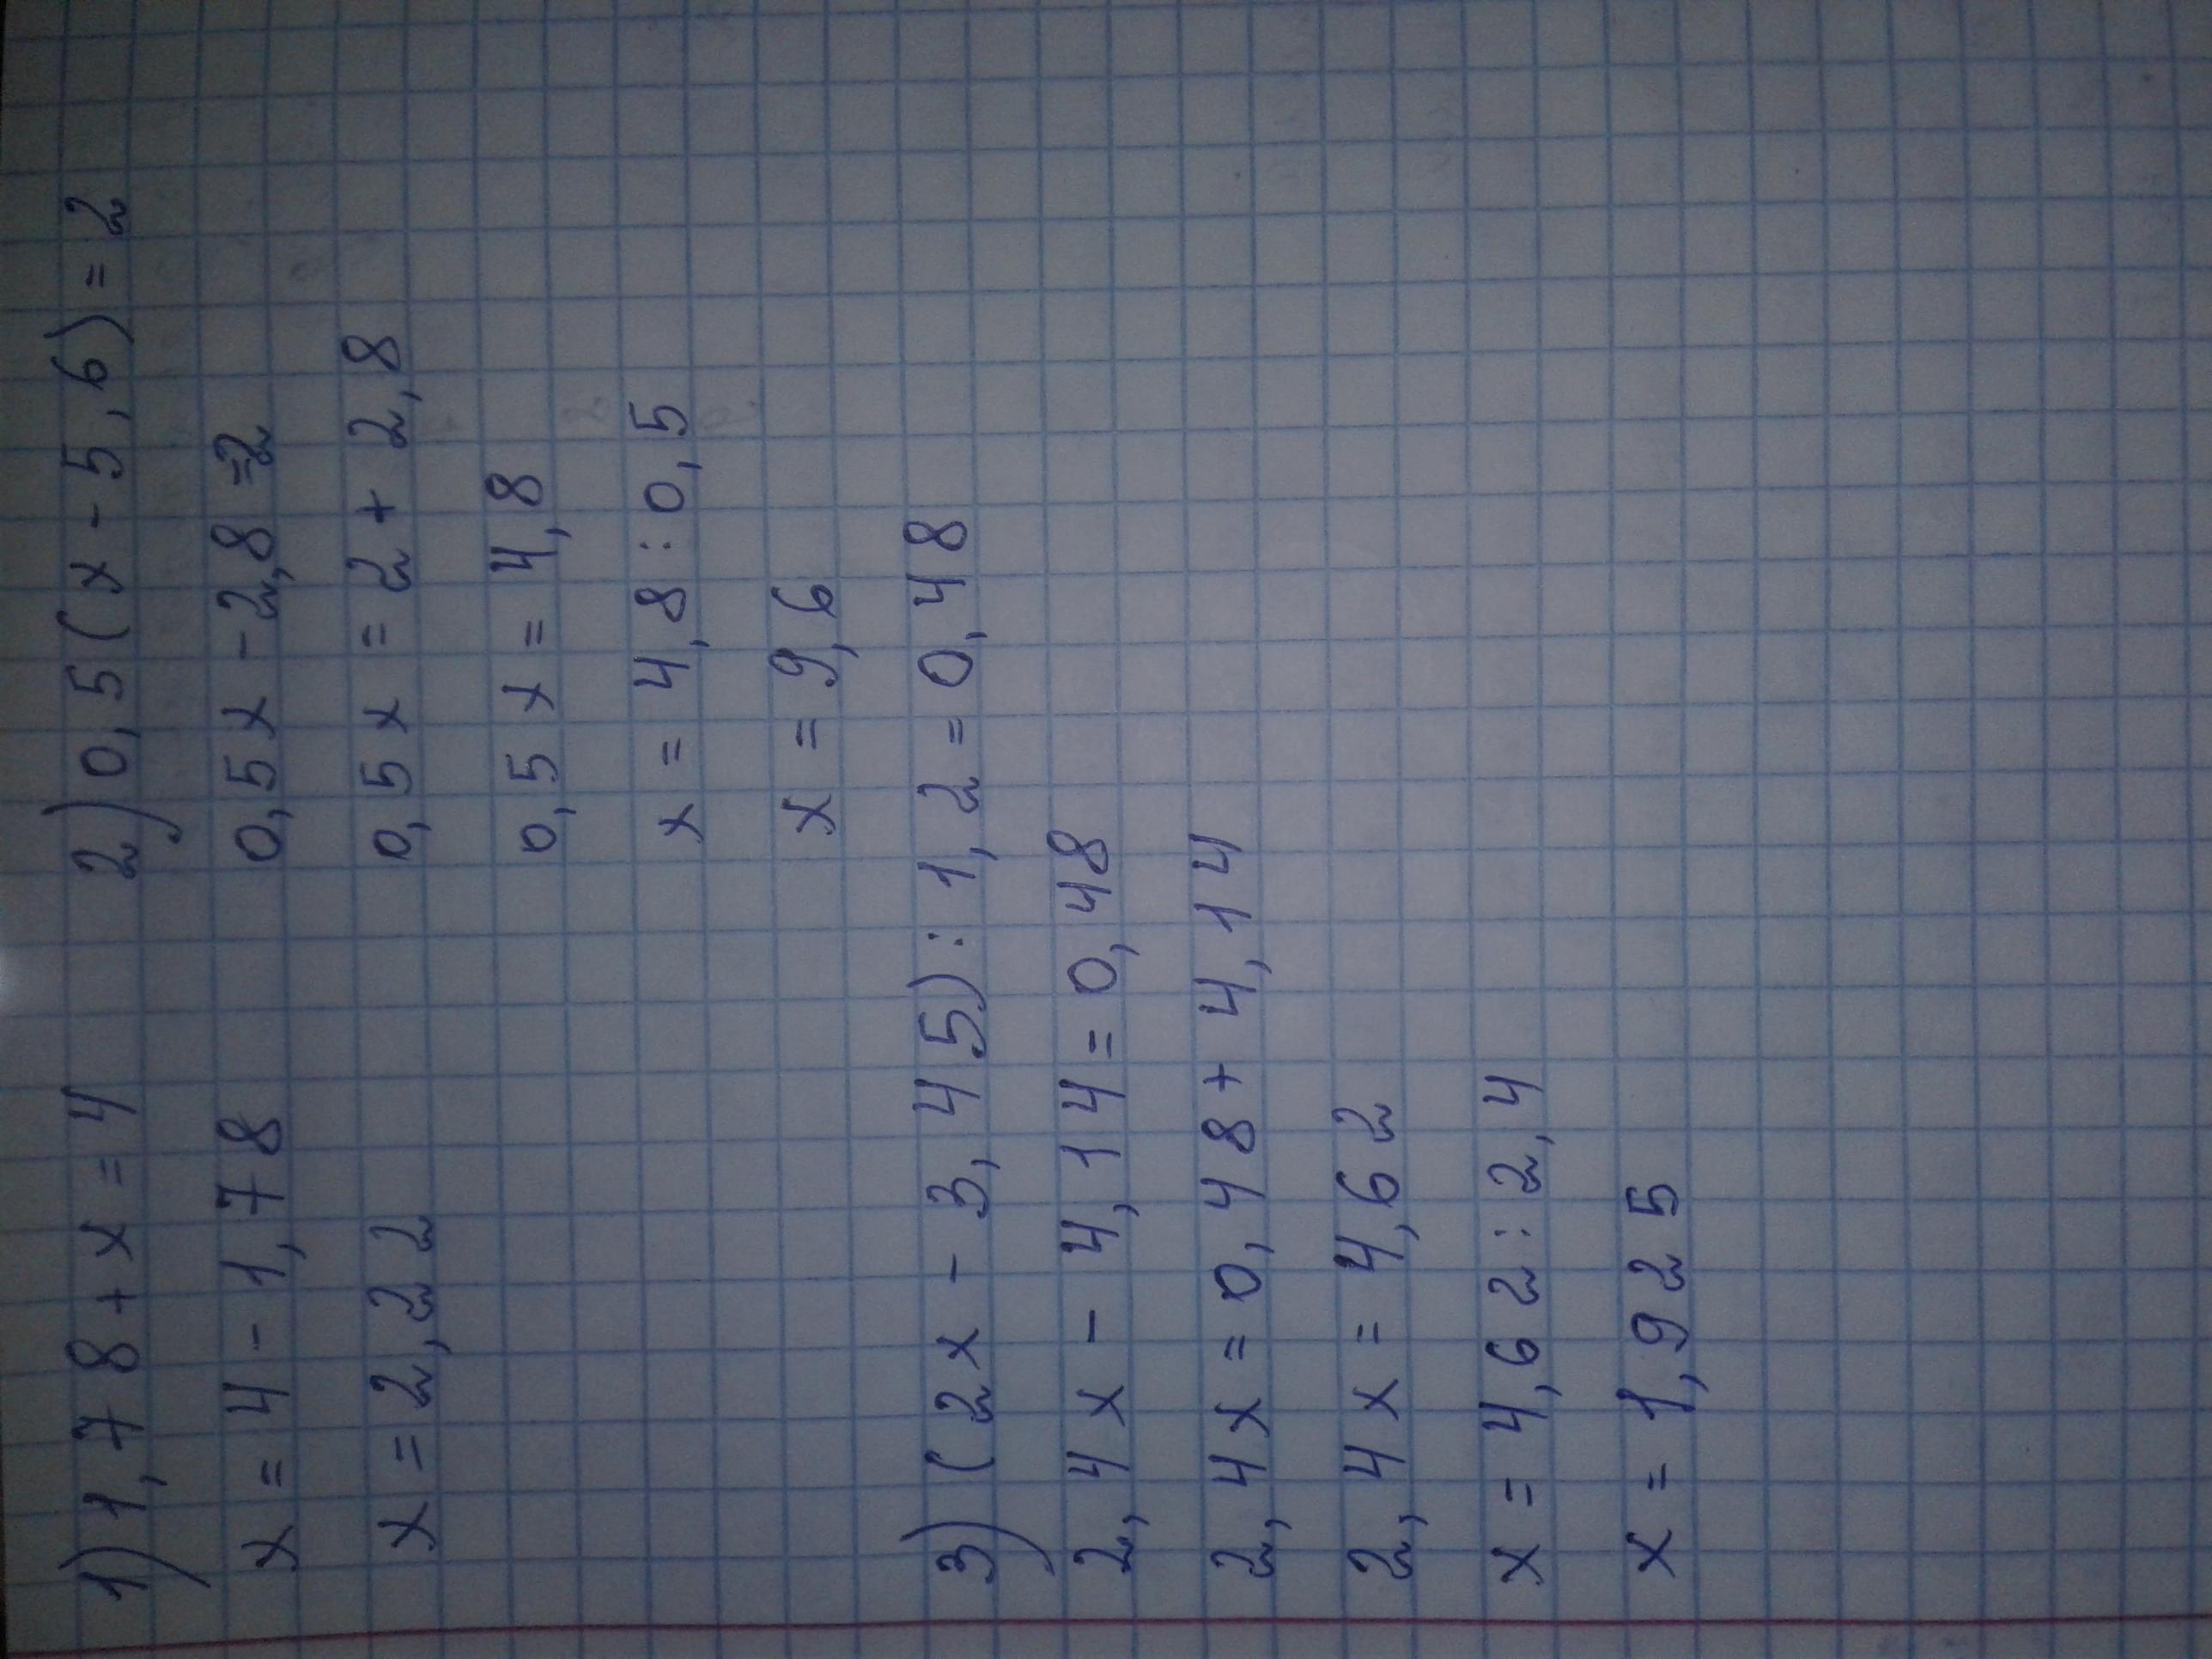 1) 1,78 + x = 4
x = 4 - 1,78
x = 2,22
2) 0,5(x - 5,6) = 2
0,5x - 2,8 = 2
0,5x = 2 + 2,8
0,5x = 4,8
x = 4,8 : 0,5
x = 9,6
3) (2x - 3,45) : 1,2 = 0,48
2,4x - 4,14 = 0,48
2,4x = 0,48 + 4,14
2,4x = 4,62
x = 4,62 : 2,4
x = 1,925